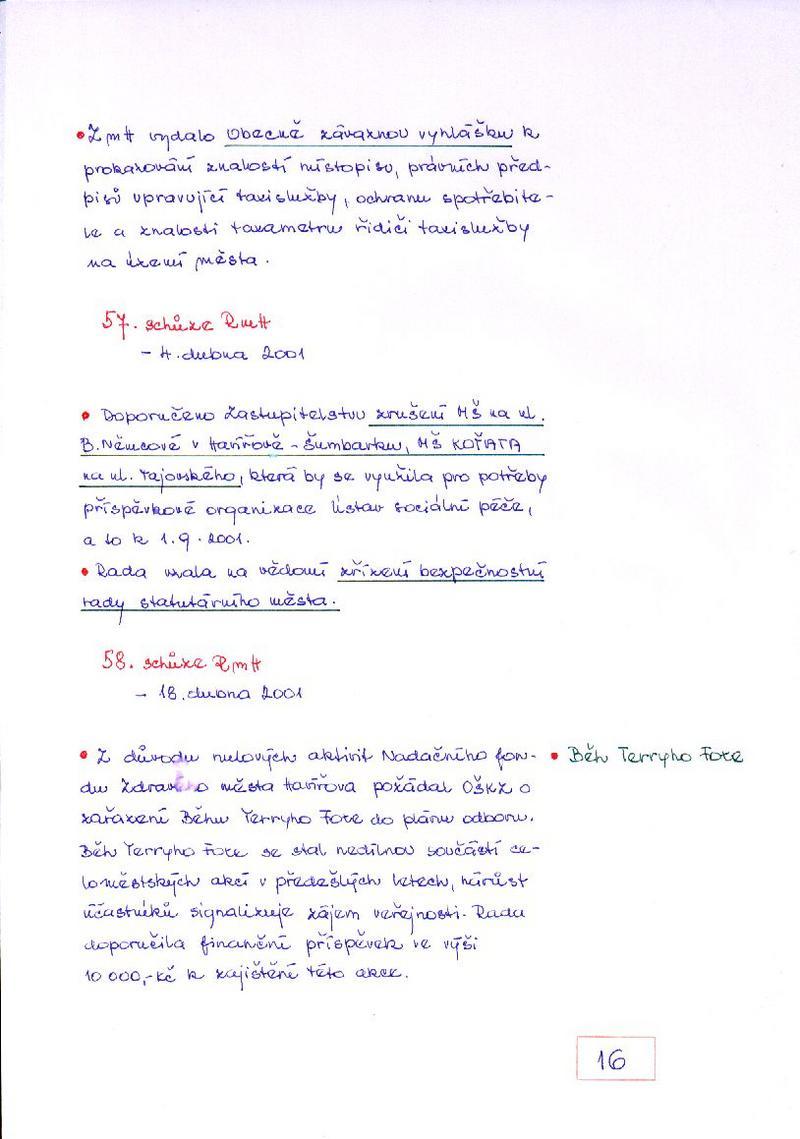 • ZmH vydalo Obecně závaznou vyhlášku k
prokazování znalostí místopisu, právních před-
pisů upravující taxislužby, ochranu spotřebite-
le a znalosti taxametru řidiči taxislužby
na území města.
57. schůze RmH
- 4. dubna 2001
• Doporučeno Zastupitelstvu zrušení MŠ na ul.
B. Němcové v Havířově - Šumbarku, MŠ KOŤATA
na ul. Tajovského, která by se využila pro potřeby
příspěvkové organizace Ústav sociální péče,
a to k 1.9.2001.
• Rada vzala na vědomí zřízení bezpečnostní
rady statutárního města.
58. schůze RmH
- 18. dubna 2001
• Z důvodu nulových aktivit Nadačního fon-
du Zdravého města Havířova požádal OŠKZ o
zařazení Běhu Terryho Foxe do plánu odboru.
Běh Terryho Foxe se stal nedílnou součástí ce-
loměstských akcí v předešlých letech, nárůst
účastníků signalizuje zájem veřejnosti. Rada
doporučila finanční příspěvek ve výši
10 000,- Kč k zajištění této akce.
• Běh Terryho Foxe
16